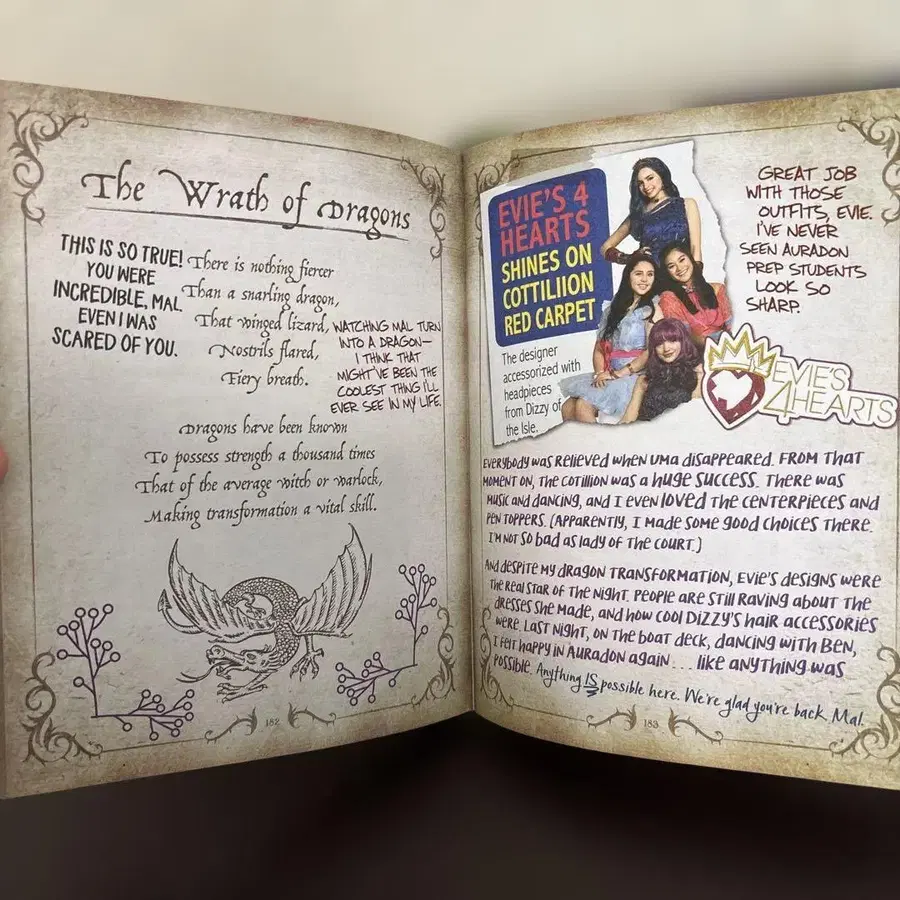 The Wrath of Dragons
THIS IS SO TRUE!
YOU WERE
INCREDIBLE, MAL.
EVEN I WAS
SCARED OF YOU.
There is nothing fiercer
Than a snarling dragon,
That winged lizard,
Nostrils flared,
Fiery breath.
WATCHING MAL TURN
INTO A DRAGON—
I THINK THAT
MIGHT'VE BEEN THE
COOLEST THING I'LL
EVER SEE IN MY LIFE.
Dragons have been known
To possess strength a thousand times
That of the average witch or warlock,
Making transformation a vital skill.
182
EVIE'S 4
HEARTS
SHINES ON
COTTILIION
RED CARPET
The designer
accessorized with
headpieces
from Dizzy of
the Isle.
GREAT JOB
WITH THOSE
OUTFITS, EVIE.
I'VE NEVER
SEEN AURADON
PREP STUDENTS
LOOK SO
SHARP.
EVIE'S
4HEARTS
EVERYBODY WAS RELIEVED WHEN UMA DISAPPEARED. FROM THAT
MOMENT ON, THE COTILLION WAS A HUGE SUCCESS. THERE WAS
MUSIC AND DANCING, AND I EVEN LOVED THE CENTERPIECES AND
PEN TOPPERS. (APPARENTLY, I MADE SOME GOOD CHOICES THERE.
I'M NOT SO BAD AS LADY OF THE COURT.)
AND DESPITE MY DRAGON TRANSFORMATION, EVIE'S DESIGNS WERE
THE REAL STAR OF THE NIGHT. PEOPLE ARE STILL RAVING ABOUT THE
DRESSES SHE MADE, AND HOW COOL DIZZY'S HAIR ACCESSORIES
WERE. LAST NIGHT, ON THE BOAT DECK, DANCING WITH BEN,
I FELT HAPPY IN AURADON AGAIN . . . LIKE ANYTHING WAS
POSSIBLE. Anything IS possible here. We're glad you're back, Mal.
183